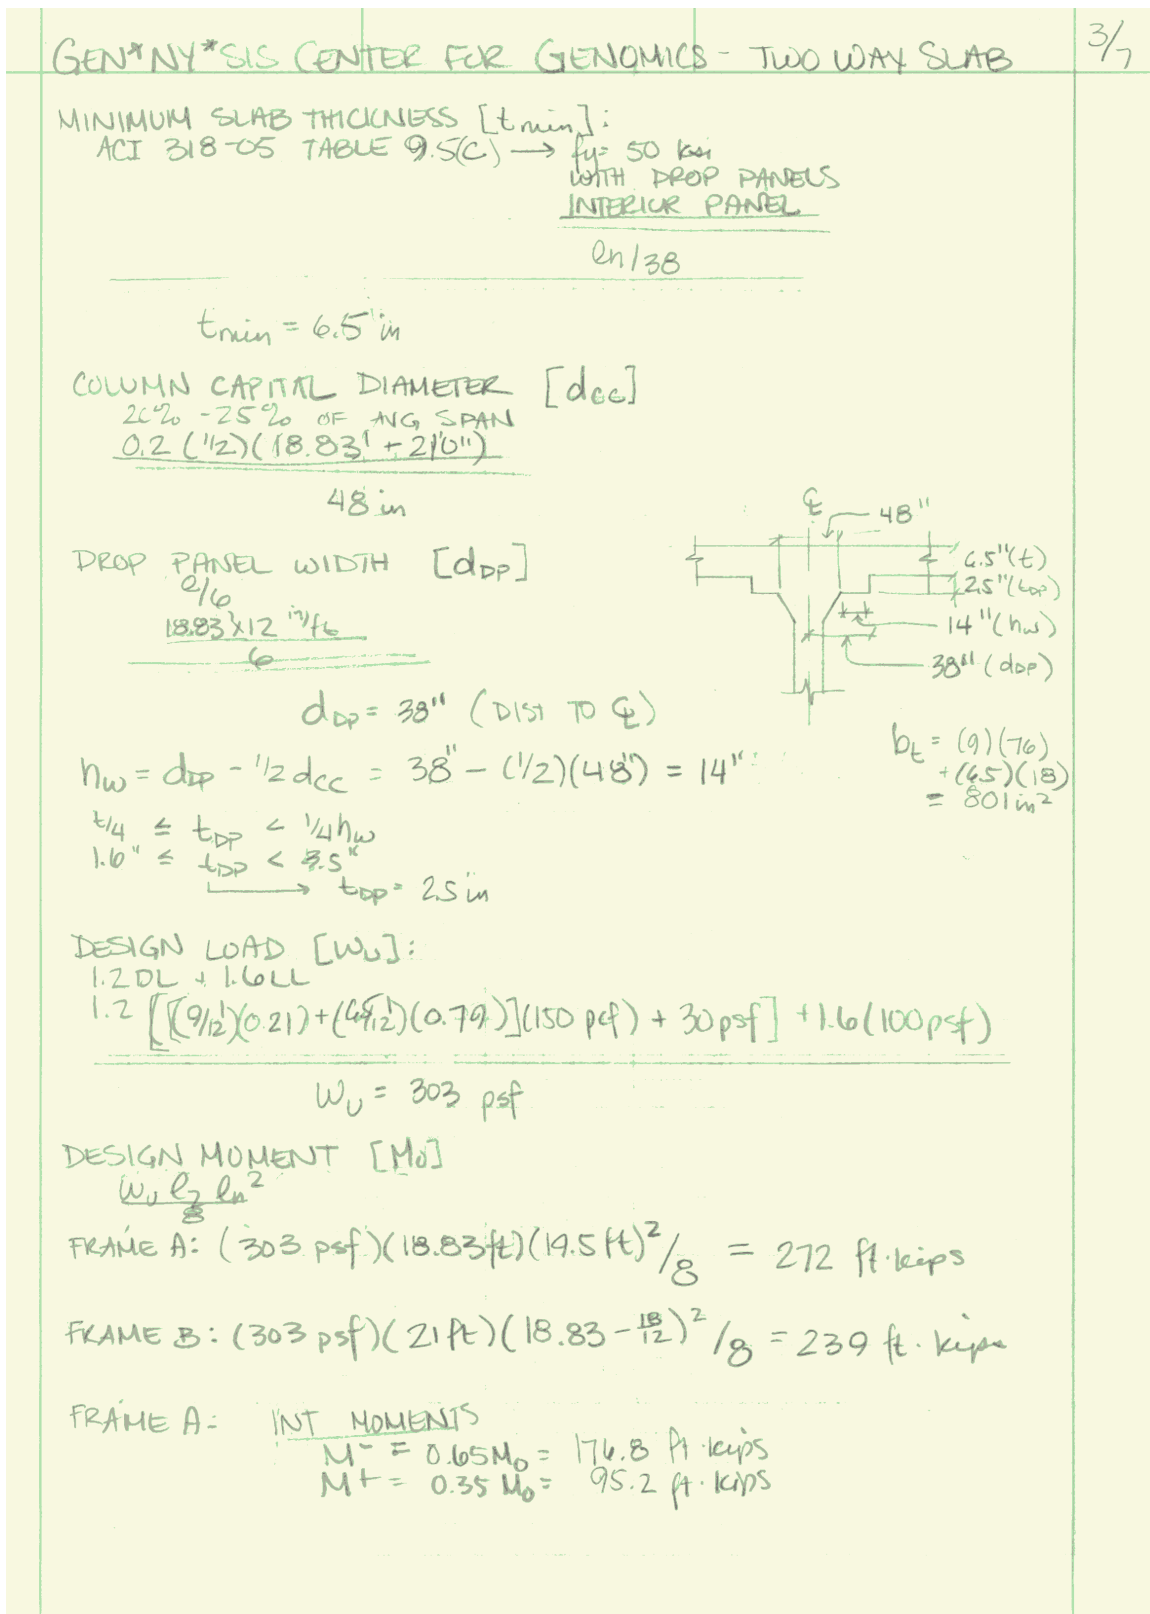 GEN*NY*SIS CENTER FOR GENOMICS - TWO WAY SLAB
3/7
MINIMUM SLAB THICKNESS [tmin]:
ACI 318-05 TABLE 9.5(C) → fy= 50 ksi
WITH DROP PANELS
INTERIOR PANEL
ln/38
tmin = 6.5 in
COLUMN CAPITAL DIAMETER [dcc]
20% - 25% OF AVG SPAN
0.2 (1/2)(18.83' + 21'0")
48 in
DROP PANEL WIDTH [dDP]
l/6
18.83' x 12 in/ft
6
℄
48"
6.5"(t)
2.5"(tDP)
14"(hw)
38"(dDP)
dDP = 38" (DIST TO ℄)
bt = (9)(76)
+(6.5)(18)
= 801 in²
hw = dDP - 1/2 dcc = 38" - (1/2)(48") = 14"
t/4 ≤ tDP < 1/4 hw
1.6" ≤ tDP < 3.5"
→ tDP = 2.5 in
DESIGN LOAD [Wu]:
1.2DL + 1.6LL
1.2 [[(9/12')(0.21)+(6.5/12')(0.79)](150 pcf) + 30psf] + 1.6(100psf)
Wu = 303 psf
DESIGN MOMENT [Mo]
Wu l2 ln²
8
FRAME A: (303 psf)(18.83ft)(19.5ft)²/8 = 272 ft·kips
FRAME B: (303 psf)(21ft)(18.83 - 18/12)²/8 = 239 ft·kips
FRAME A: INT MOMENTS
M- = 0.65Mo = 176.8 ft·kips
M+ = 0.35Mo = 95.2 ft·kips